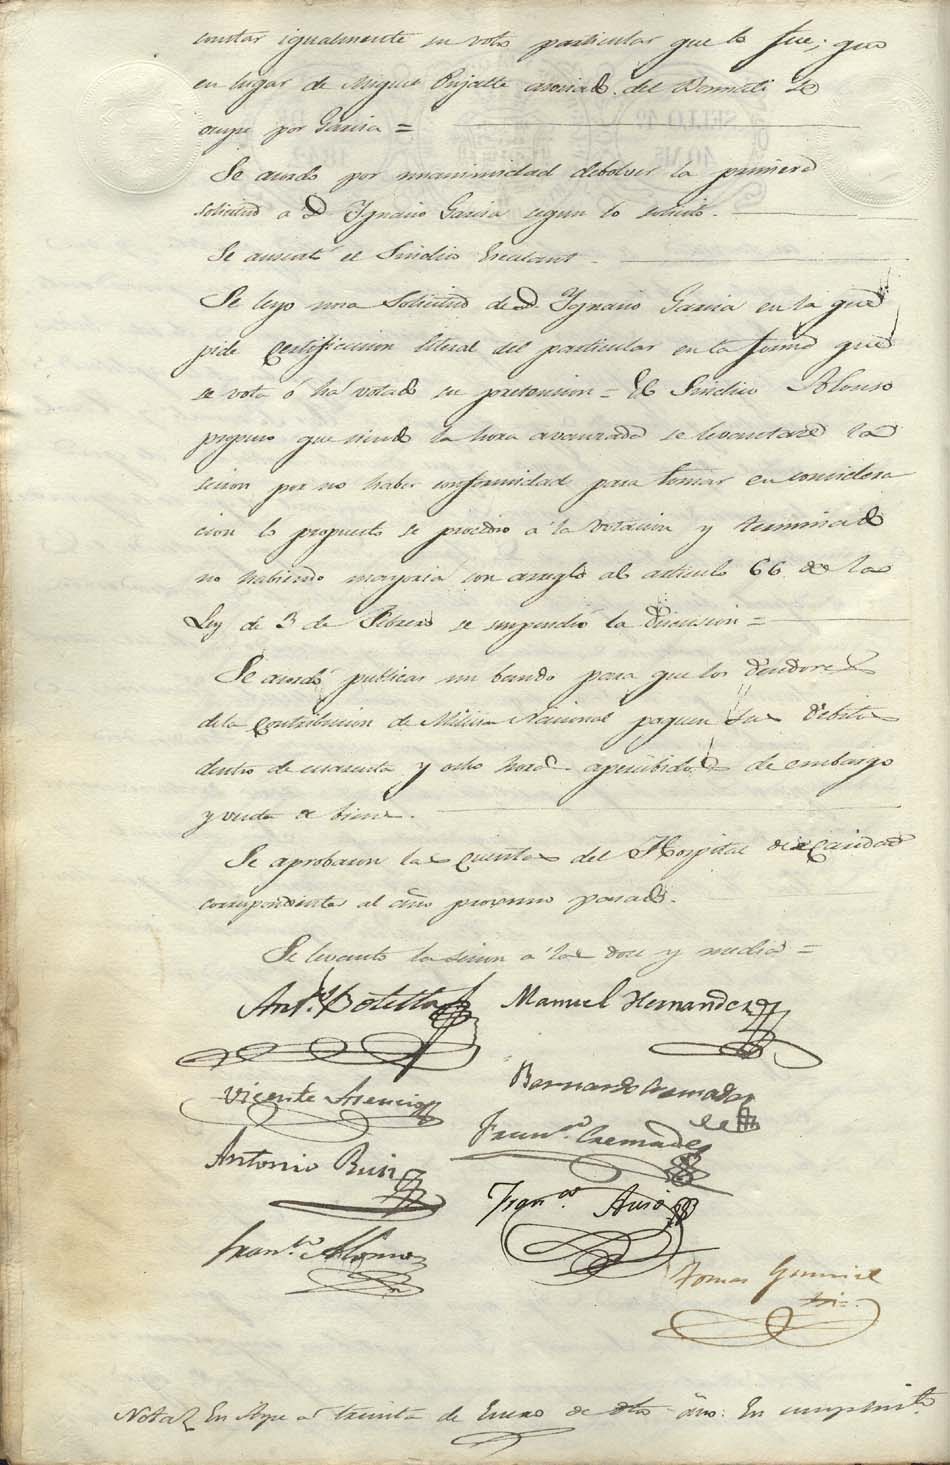 contar igualmente su voto particular que lo fue; que
en lugar de Miguel Rijalte asociado del Bonnati se
ocupe por Garcia =
Se acordo por unanimidad debolver la primera
solicitud a D. Ygnacio Garcia segun lo solicito.
Se ausentó el Sindico
Se leyo una Solicitud de D. Ygnacio Garcia en la que
pide certificacion literal del particular en la forma que
se vota ó há votado su pretencion = El Sindico Alonso
propuso que siendo la hora avanzada se levantase la
secion por no haber conformidad para tomar en considera
cion lo propuesto se procedio a la votacion y terminado
no habiendo mayoria con arreglo al articulo 66 de la
Ley de 3 de Febrero se suspendió la discusion =
Se acordó publicar un bando para que los deudores
de la contribucion de Milicia Nacional paguen sus debitos
dentro de cuarenta y ocho horas apercibidos de embargo
y venta de bienes.
Se aprobaron las cuentas del Hospital de Caridad
correspondientes al año procsimo pasado.
Se levanto la secion a las doce y media =
Ant.º Botella
Manuel Hernandez
Vicente Asencio
Bernardo Cremades
Fran.co Cremades
Antonio Ruiz
Fran.co Asio
Fran.co Alonso
Tomas Gumiel
Srio.
SELLO 4º
40 MS
Nota En Aspe a treinta de Enero de dho año: En cumplimto